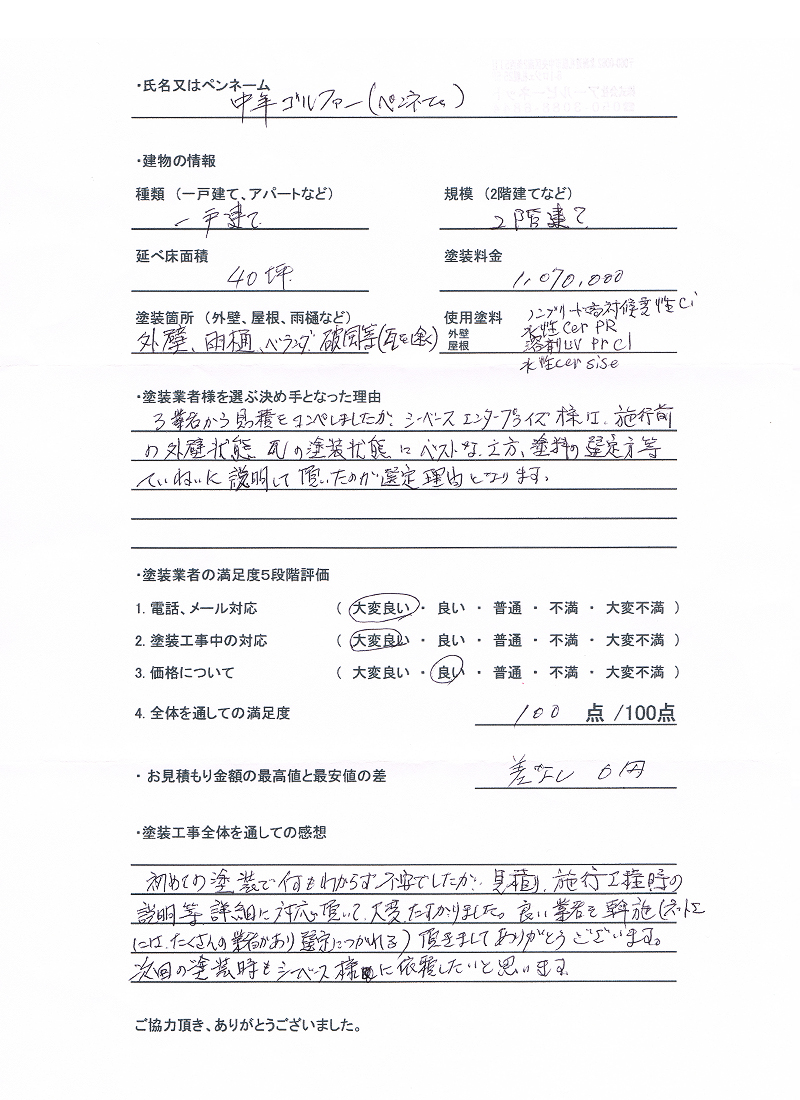 ・氏名又はペンネーム
中年ゴルファー(ペンネーム)
・建物の情報
種類 (一戸建て、アパートなど)
一戸建て
規模 (2階建てなど)
2階建て
延べ床面積
40坪
塗装料金
1,070,000
塗装箇所 (外壁、屋根、雨樋など)
外壁、雨樋、ベランダ、破風等(瓦を除く)
使用塗料
外壁
屋根
水性Cer PR
溶剤UV PR Cl
水性Cer sise
・塗装業者様を選ぶ決め手となった理由
3業者から見積をコンペしましたが、シーベースエンタープライズ様は、施行前
の外壁状態、瓦の塗装状態にベストな 方、塗料の選定方等
ていねいに説明して頂いたのが選定理由となります。
・塗装業者の満足度5段階評価
1. 電話、メール対応 ( 大変良い ・ 良い ・ 普通 ・ 不満 ・ 大変不満 )
2. 塗装工事中の対応 ( 大変良い ・ 良い ・ 普通 ・ 不満 ・ 大変不満 )
3. 価格について ( 大変良い ・ 良い ・ 普通 ・ 不満 ・ 大変不満 )
4. 全体を通しての満足度 100 点 /100点
・ お見積もり金額の最高値と最安値の差 差なし 0円
・塗装工事全体を通しての感想
初めての塗装で何もわからず不安でしたが、見積り、施行工程時の
説明等詳細に対応頂いて、大変たすかりました。良い業者を斡旋(ネット上
には、たくさんの業者があり選定につかれる)頂きましてありがとうございます。
次回の塗装時もシーベース様に依頼したいと思います。
ご協力頂き、ありがとうございました。